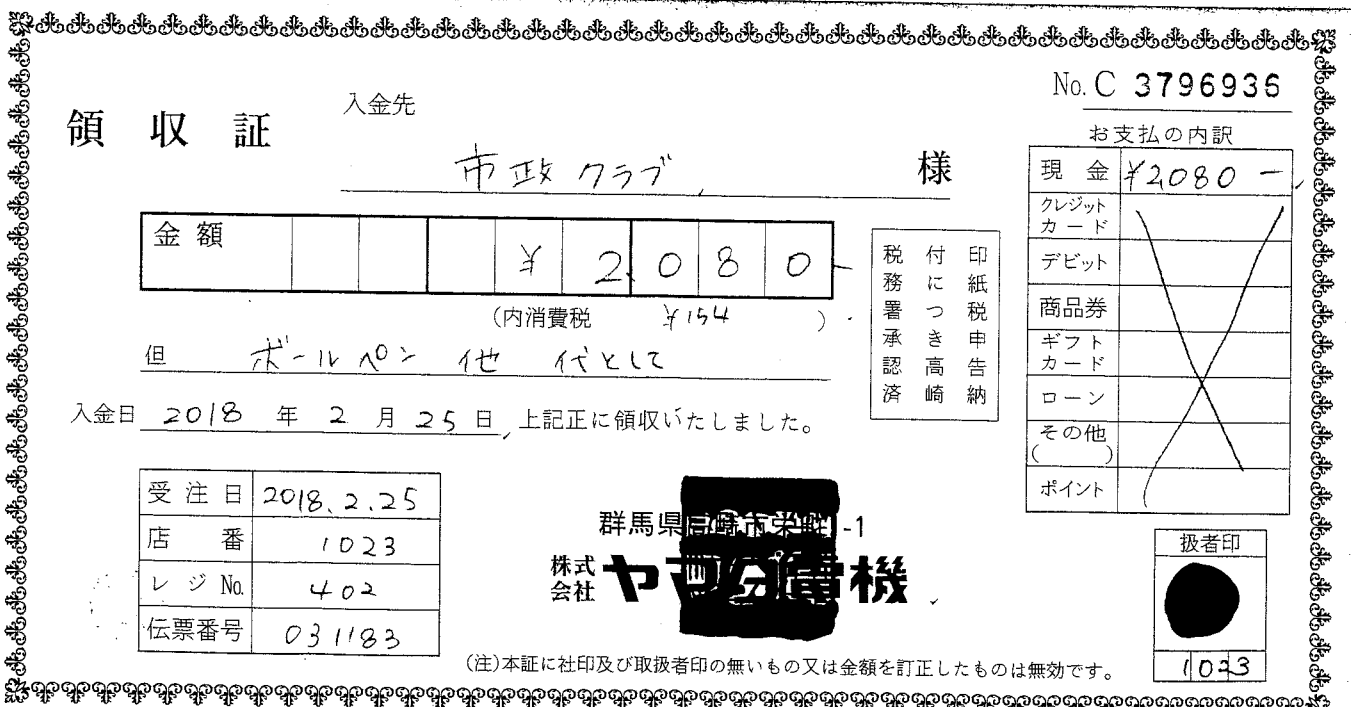 No. C 3796936
領収証
入金先
市政クラブ 様
金額 ¥2080-
(内消費税 ¥154 )
但 ボールペン 他 代として
入金日 2018 年 2 月 25 日, 上記正に領収いたしました。
印紙税申告納
付につき高崎
税務署承認済
お支払の内訳
現金 ¥2080-
クレジットカード
デビット
商品券
ギフトカード
ローン
その他( )
ポイント
受注日 2018.2.25
店番 1023
レジNo. 402
伝票番号 031183
群馬県高崎市栄町1-1
株式会社 ヤマダ電機
扱者印
1023
(注)本証に社印及び取扱者印の無いもの又は金額を訂正したものは無効です。